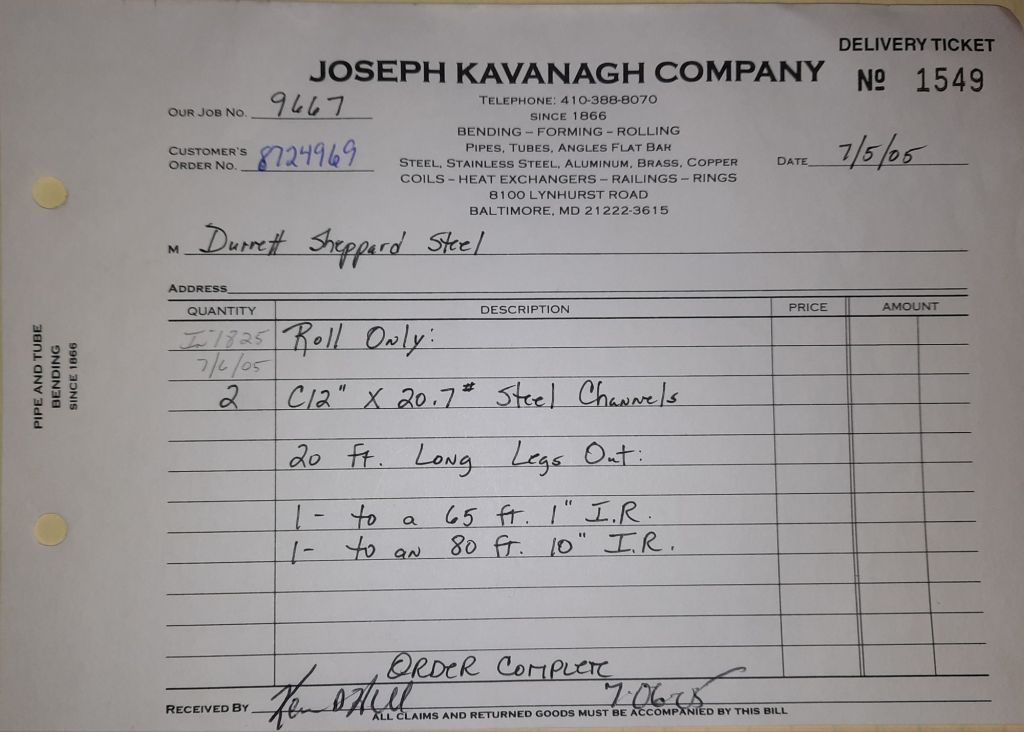 DELIVERY TICKET
JOSEPH KAVANAGH COMPANY
Nº 1549
TELEPHONE: 410-388-8070
OUR JOB NO. 9667
SINCE 1866
BENDING – FORMING – ROLLING
PIPES, TUBES, ANGLES FLAT BAR
CUSTOMER'S
ORDER NO. 8724969
STEEL, STAINLESS STEEL, ALUMINUM, BRASS, COPPER
DATE 7/5/05
COILS – HEAT EXCHANGERS – RAILINGS – RINGS
8100 LYNHURST ROAD
BALTIMORE, MD 21222-3615
M Durrett Sheppard Steel
ADDRESS
QUANTITY DESCRIPTION PRICE AMOUNT
1825 Roll Only:
7/6/05
2 C12" X 20.7# Steel Channels
20 ft. Long Legs Out:
1- to a 65 ft. 1" I.R.
1- to an 80 ft. 10" I.R.
ORDER COMPLETE
RECEIVED BY 7-06-05
ALL CLAIMS AND RETURNED GOODS MUST BE ACCOMPANIED BY THIS BILL
PIPE AND TUBE
BENDING
SINCE 1866